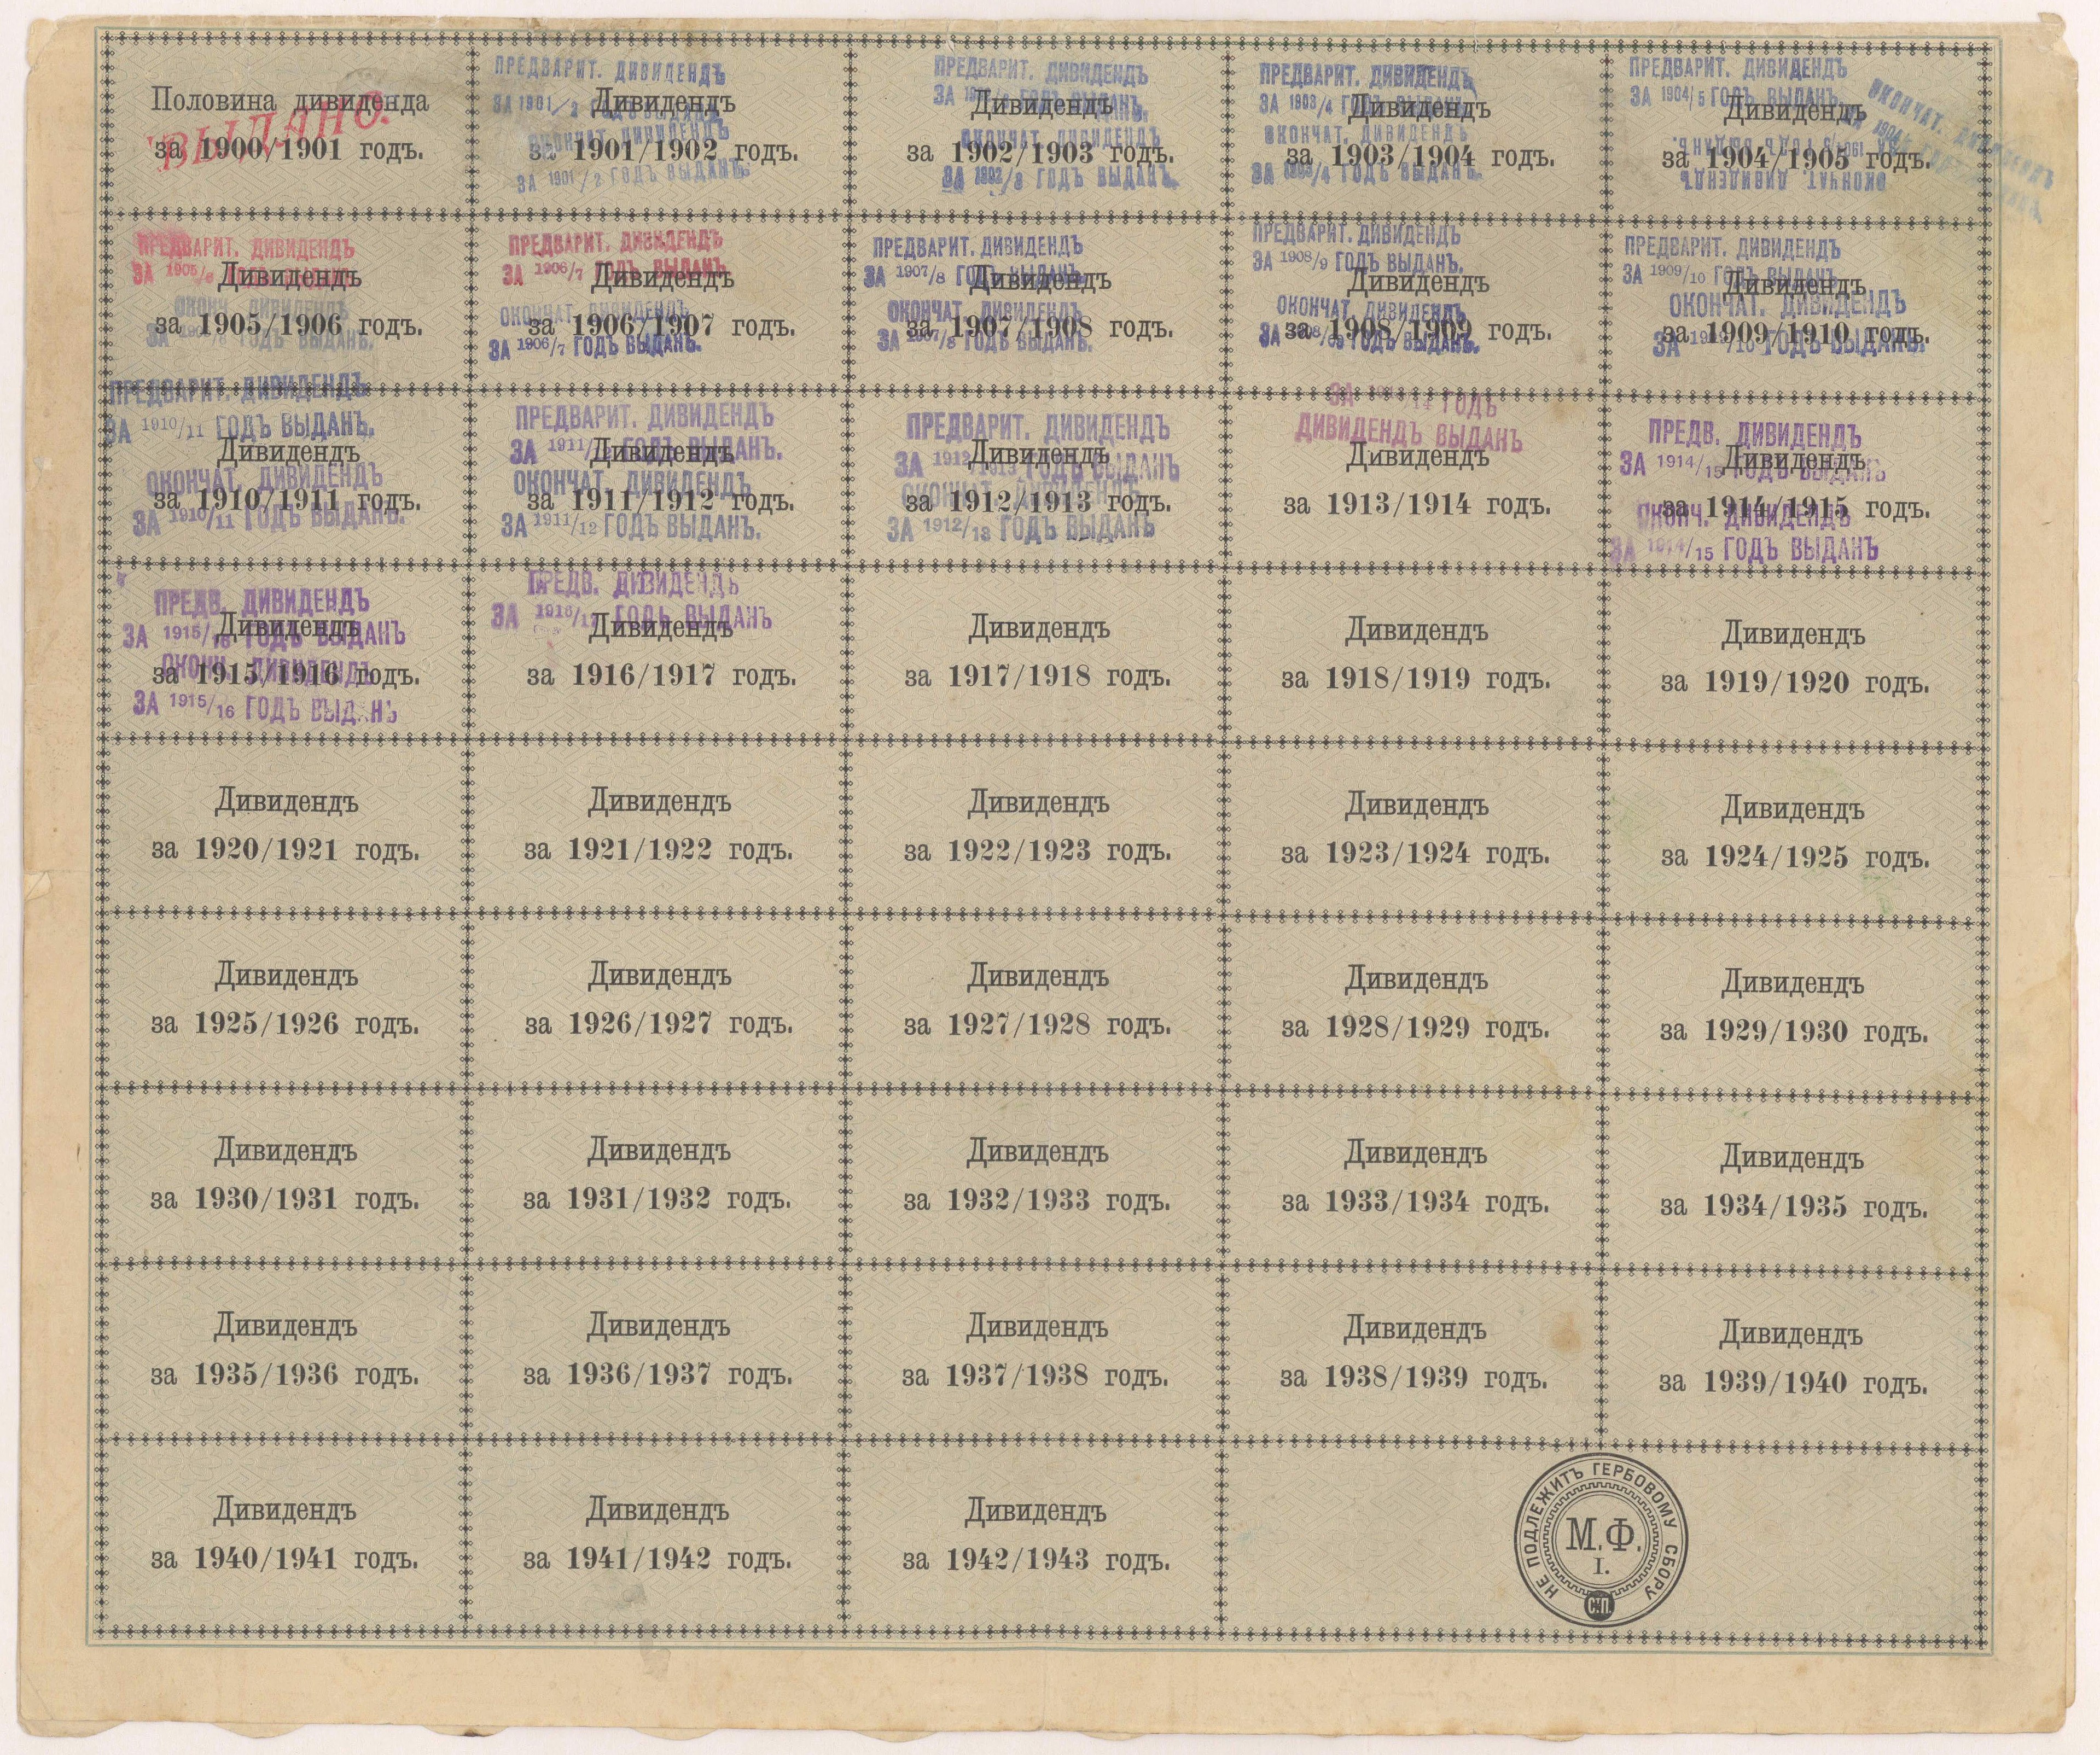 Половина дивиденда
за 1900/1901 годъ.
ВЫДАНО.
ПРЕДВАРИТ. ДИВИДЕНДЪ
ЗА 1901/2
Дивидендъ
за 1901/1902 годъ.
ОКОНЧАТ. ДИВИДЕНДЪ
ЗА 1901/2 ГОДЪ ВЫДАНЪ.
ПРЕДВАРИТ. ДИВИДЕНДЪ
ЗА
Дивидендъ
за 1902/1903 годъ.
ОКОНЧАТ. ДИВИДЕНДЪ
ЗА 1902/3 ГОДЪ ВЫДАНЪ.
ПРЕДВАРИТ. ДИВИДЕНДЪ
ЗА 1903/4
Дивидендъ
за 1903/1904 годъ.
ОКОНЧАТ. ДИВИДЕНДЪ
ЗА 1903/4 ГОДЪ ВЫДАНЪ.
ПРЕДВАРИТ. ДИВИДЕНДЪ
ЗА 1904/5 ГОДЪ ВЫДАНЪ.
Дивидендъ
за 1904/1905 годъ.
ОКОНЧАТ. ДИВИДЕНДЪ
ПРЕДВАРИТ. ДИВИДЕНДЪ
ЗА 1905/6
Дивидендъ
за 1905/1906 годъ.
ОКОНЧ. ДИВИДЕНДЪ
ГОДЪ ВЫДАНЪ.
ПРЕДВАРИТ. ДИВИДЕНДЪ
ЗА 1906/7 ГОДЪ ВЫДАНЪ
Дивидендъ
за 1906/1907 годъ.
ОКОНЧАТ. ДИВИДЕНДЪ
ЗА 1906/7 ГОДЪ ВЫДАНЪ.
ПРЕДВАРИТ. ДИВИДЕНДЪ
ЗА 1907/8 ГОДЪ ВЫДАНЪ.
Дивидендъ
за 1907/1908 годъ.
ОКОНЧАТ. ДИВИДЕНДЪ
ЗА 1907/8 ГОДЪ ВЫДАНЪ.
ПРЕДВАРИТ. ДИВИДЕНДЪ
ЗА 1908/9 ГОДЪ ВЫДАНЪ.
Дивидендъ
за 1908/1909 годъ.
ОКОНЧАТ. ДИВИДЕНДЪ
ЗА 1908/9 ГОДЪ ВЫДАНЪ.
ПРЕДВАРИТ. ДИВИДЕНДЪ
ЗА 1909/10 ГОДЪ ВЫДАНЪ
Дивидендъ
за 1909/1910 годъ.
ОКОНЧАТ. ДИВИДЕНДЪ
ЗА 1909/10 ГОДЪ ВЫДАНЪ.
ПРЕДВАРИТ. ДИВИДЕНДЪ
ЗА 1910/11 ГОДЪ ВЫДАНЪ.
Дивидендъ
за 1910/1911 годъ.
ОКОНЧАТ. ДИВИДЕНДЪ
ЗА 1910/11 ГОДЪ ВЫДАНЪ.
ПРЕДВАРИТ. ДИВИДЕНДЪ
ЗА 1911/12 ГОДЪ ВЫДАНЪ.
Дивидендъ
за 1911/1912 годъ.
ОКОНЧАТ. ДИВИДЕНДЪ
ЗА 1911/12 ГОДЪ ВЫДАНЪ.
ПРЕДВАРИТ. ДИВИДЕНДЪ
ЗА 1912/1913 ГОДЪ ВЫДАНЪ
Дивидендъ
за 1912/1913 годъ.
ОКОНЧАТ. ДИВИДЕНДЪ
ЗА 1912/13 ГОДЪ ВЫДАНЪ
ЗА 1913/14 ГОДЪ
ДИВИДЕНДЪ ВЫДАНЪ
Дивидендъ
за 1913/1914 годъ.
ПРЕДВ. ДИВИДЕНДЪ
ЗА 1914/15 ГОДЪ ВЫДАНЪ
Дивидендъ
за 1914/1915 годъ.
ОКОНЧ. ДИВИДЕНДЪ
ЗА 1914/15 ГОДЪ ВЫДАНЪ
ПРЕДВ. ДИВИДЕНДЪ
ЗА 1915/16 ГОДЪ ВЫДАНЪ
Дивидендъ
за 1915/1916 годъ.
ОКОНЧ. ДИВИДЕНДЪ
ЗА 1915/16 ГОДЪ ВЫДАНЪ
ПРЕДВ. ДИВИДЕНДЪ
ЗА 1916/17 ГОДЪ ВЫДАНЪ
Дивидендъ
за 1916/1917 годъ.
Дивидендъ
за 1917/1918 годъ.
Дивидендъ
за 1918/1919 годъ.
Дивидендъ
за 1919/1920 годъ.
Дивидендъ
за 1920/1921 годъ.
Дивидендъ
за 1921/1922 годъ.
Дивидендъ
за 1922/1923 годъ.
Дивидендъ
за 1923/1924 годъ.
Дивидендъ
за 1924/1925 годъ.
Дивидендъ
за 1925/1926 годъ.
Дивидендъ
за 1926/1927 годъ.
Дивидендъ
за 1927/1928 годъ.
Дивидендъ
за 1928/1929 годъ.
Дивидендъ
за 1929/1930 годъ.
Дивидендъ
за 1930/1931 годъ.
Дивидендъ
за 1931/1932 годъ.
Дивидендъ
за 1932/1933 годъ.
Дивидендъ
за 1933/1934 годъ.
Дивидендъ
за 1934/1935 годъ.
Дивидендъ
за 1935/1936 годъ.
Дивидендъ
за 1936/1937 годъ.
Дивидендъ
за 1937/1938 годъ.
Дивидендъ
за 1938/1939 годъ.
Дивидендъ
за 1939/1940 годъ.
Дивидендъ
за 1940/1941 годъ.
Дивидендъ
за 1941/1942 годъ.
Дивидендъ
за 1942/1943 годъ.
НЕ ПОДЛЕЖИТЪ ГЕРБОВОМУ СБОРУ
М.Ф.
I.
С.П.